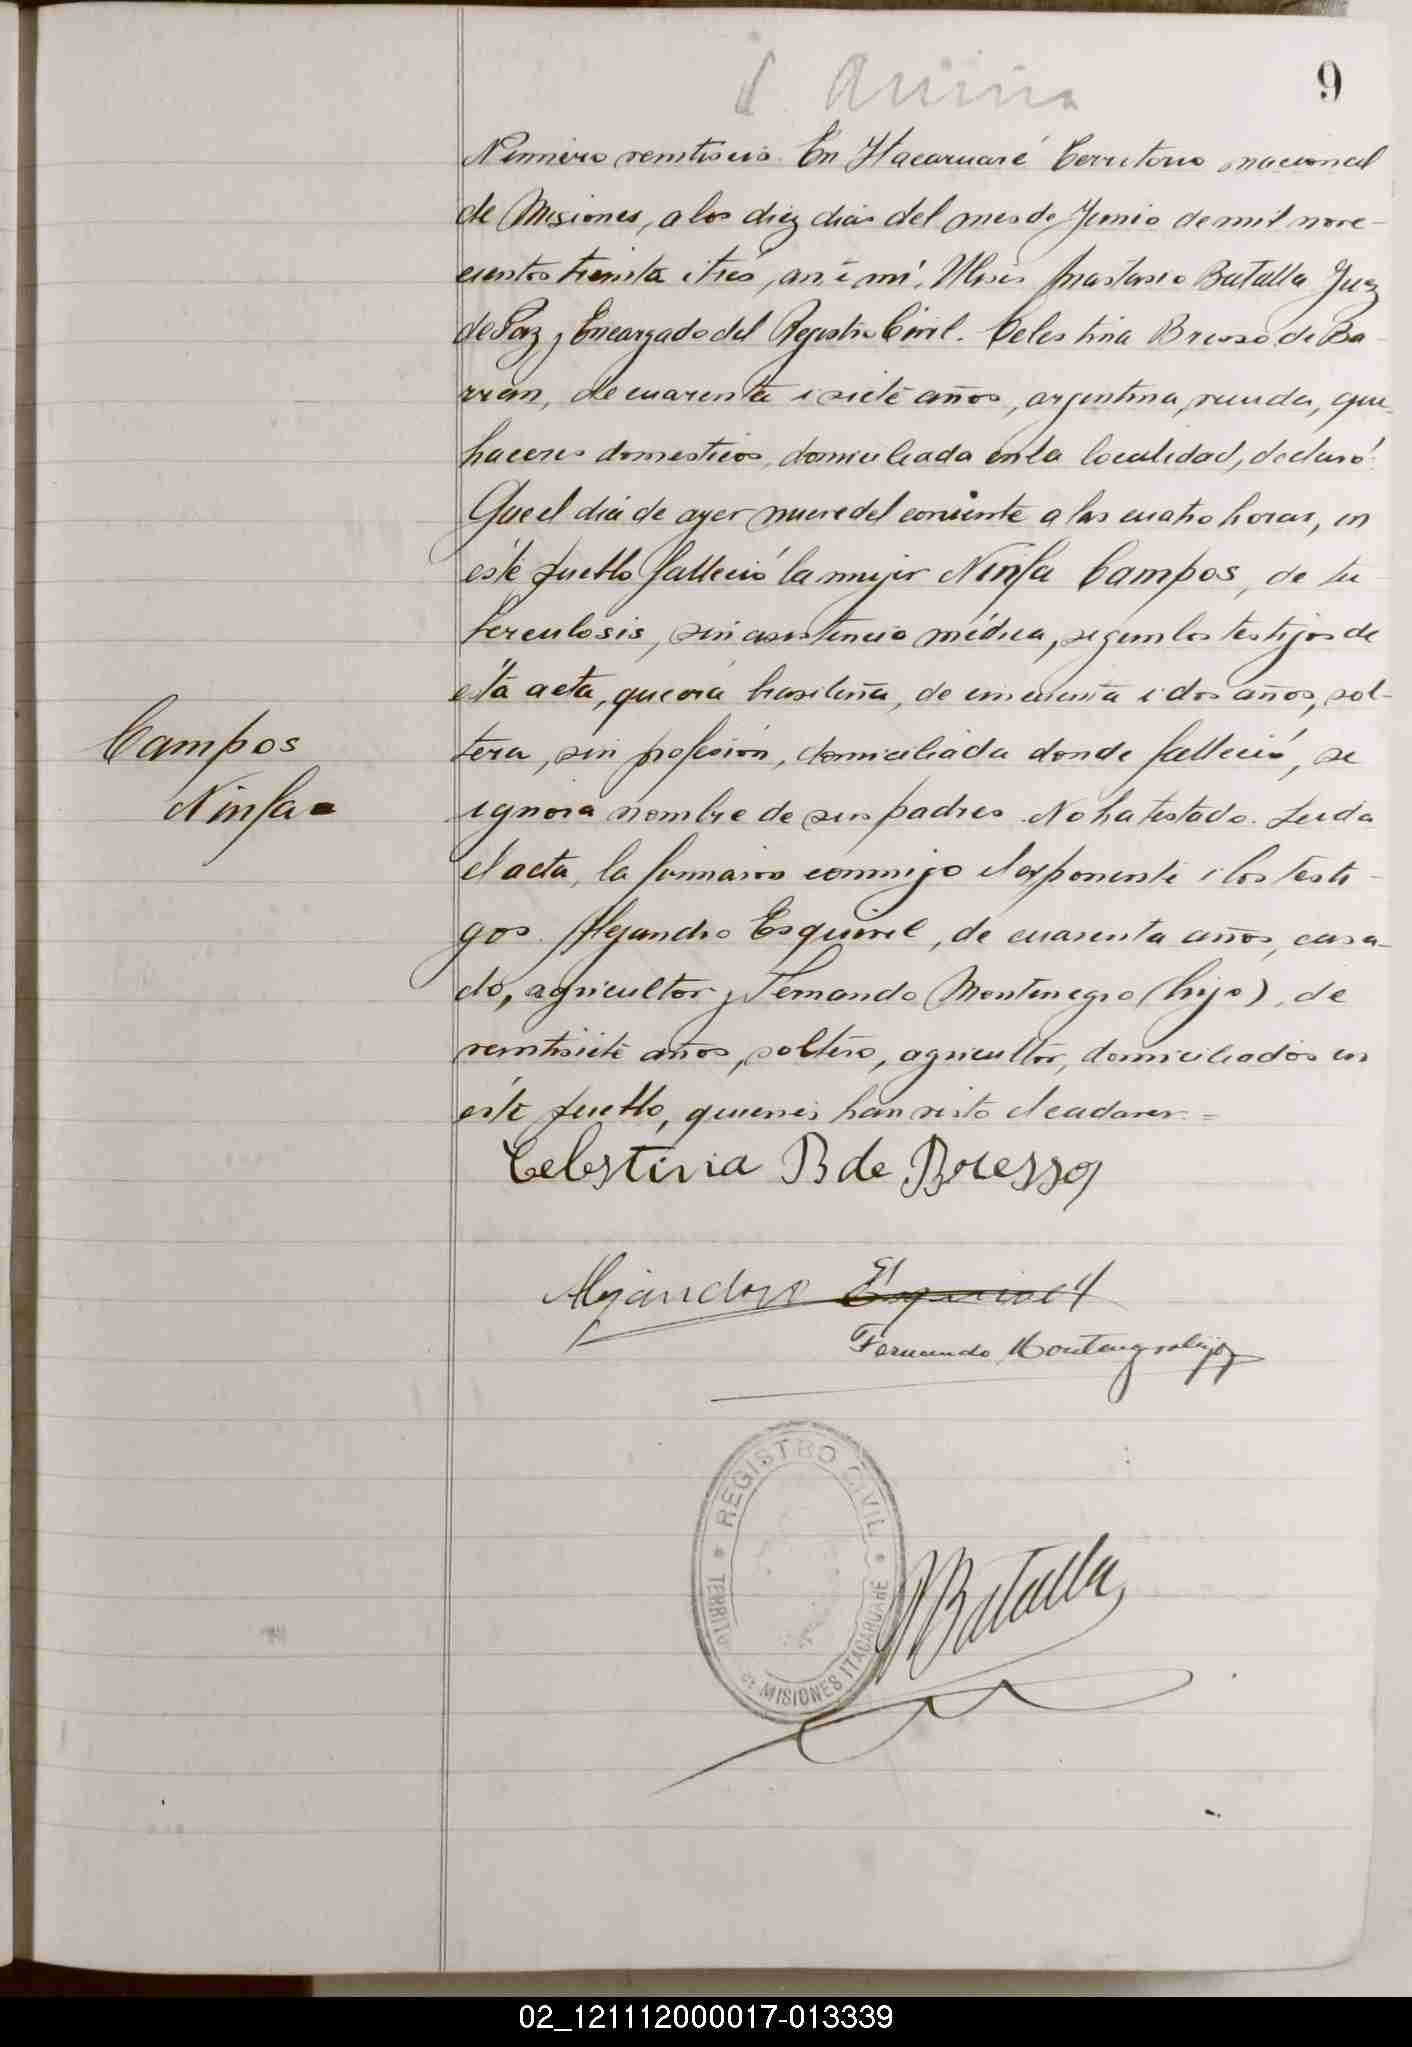 9
Número veintiseis. En Itacaruaré Territorio nacional
de Misiones, a los diez dias del mes de Junio de mil nove-
cientos treinta i tres, ante mi, Anastasio Batalla Juez
de Paz y Encargado del Registro Civil. Celestina de Ba-
rran, de cuarenta i siete años, argentina, viuda, que-
haceres domesticos, domiciliada en la localidad, declaró:
Que el dia de ayer nueve del corriente a las cuatro horas, en
éste pueblo falleció la mujer Ninfa Campos, de tu-
berculosis, sin asistencia médica, segun los testigos de
ésta acta, que era brasileña, de cincuenta i dos años, sol-
tera, sin profesión, domiciliada donde falleció, se
ignora nombre de sus padres. No ha testado. Leida
el acta, la firmaron conmigo el exponente i los testi-
gos. Alejandro Esquivel, de cuarenta años, casa-
do, agricultor y Fernando Montenegro (hijo), de
veintisiete años, soltero, agricultor, domiciliados en
éste pueblo, quienes han visto el cadaver. =
Campos
Ninfa =
Celestina B de
Alejandro Esquivel
Fernando Montenegro hijo
REGISTRO CIVIL
TERRITO DE MISIONES ITACARUARE
Batalla
02_121112000017-013339